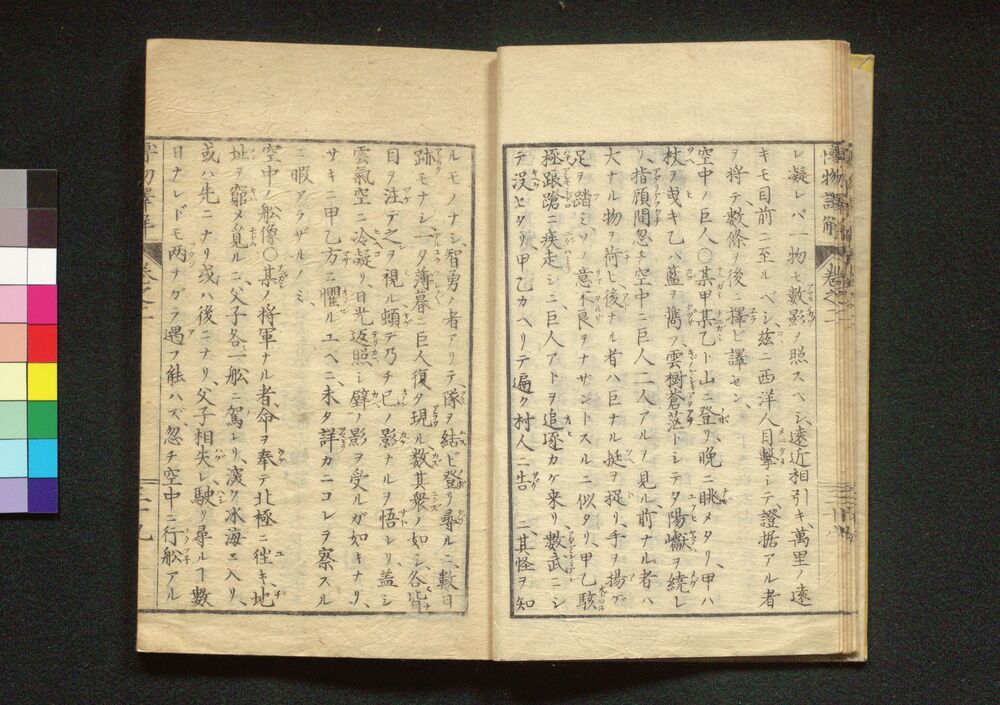 レ凝レバ一物モ數影ノ照スベシ、遠近相引キ、萬里ノ遠
キモ目前ニ至ルベシ、茲ニ西洋人目擊シテ、證据アル者
ヲ将テ、數條ヲ後ニ擇ビ譯セン、
空中ノ巨人〇某甲某乙ト山ニ登リ、晩ニ眺メタリ、甲ハ
杖ヲ曳キ乙ハ蓋ヲ携フ、雲樹蒼茫トシテ夕陽巘ヲ繞レ
リ、指顧間忽チ空中ニ巨人二人アルヲ見ル前ナル者ハ
大ナル物ヲ荷ヒ、後ナル者ハ巨ナル挺ヲ捉リ、手ヲ揚ゲ
足ヲ踏ミ、ソノ意不良ヲナサントスルニ似タリ、甲乙駭
極踉蹌ニ疾走シ、巨人アトヲ追琢カケ来リ、數武ニシ
テ没セタリ、甲乙カヘリテ遍ク村人ニ告 ニ其怪ヲ知
ルモノナシ、智勇ノ者アリテ、隊ヲ結ビ登リ尋ルニ、數日
跡モナシ、一夕薄暮ニ巨人復タ現ル、数其衆ノ如シ、各皆
目ヲ注テ之ヲ視ル頓テ乃チ己ノ影ナルヲ悟レリ、蓋シ
雲氣空ニ冷凝リ、日光返照シ壁ノ影ヲ受ルガ如キナリ、
サキニ甲乙方ニ懼ルユヘニ、未タ詳カニコレヲ察スル
ニ暇アラザルノミ、
空中ノ船像〇某ノ将軍ナル者、命ヲ奉テ北極ニ徃キ、地
址ヲ窮メ覓ルニ、父子各一船ニ駕レリ、濵ク冰海ニ入リ、
或ハ先ニナリ或ハ後ニナリ、父子相失レ、駛リ尋ルヿ數
日ナレドモ两ナガラ遇フ能ハズ、忽チ空中ニ行船アル
博物譯解
卷之二